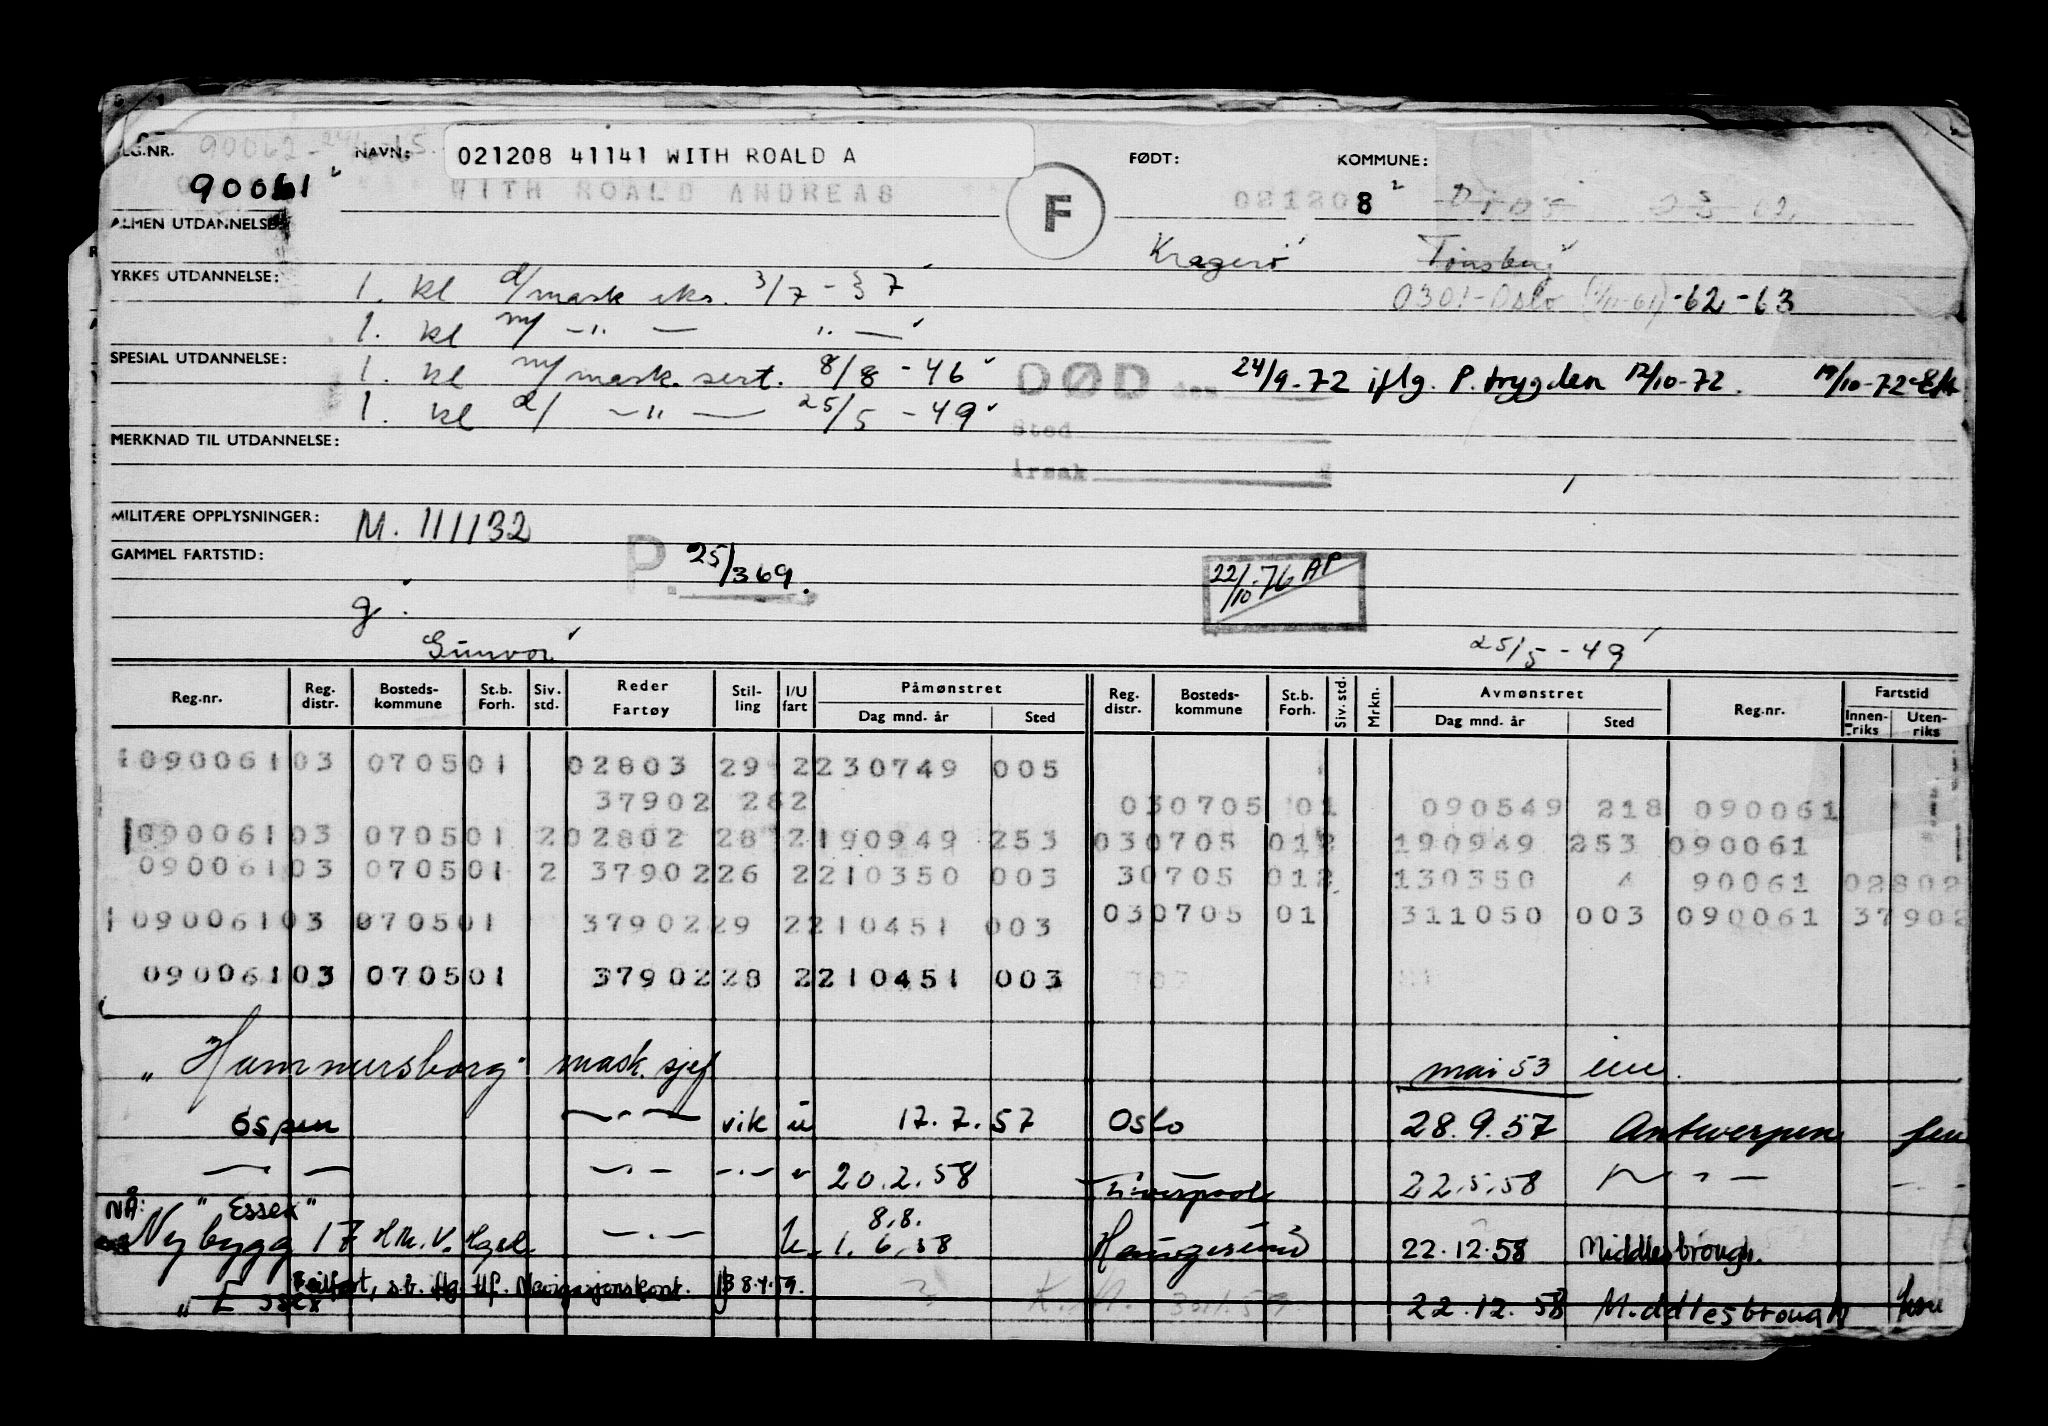 REG.NR. NAVN: 021208 41141 WITH ROALD A FØDT: KOMMUNE:
90061 WITH ROALD ANDREAS F 021208
ALMEN UTDANNELSE:
Kragerø Tønsberg
YRKES UTDANNELSE: 1. kl d/mask eks. 3/7 - 37 0301-Oslo -62-63
1. kl m/ -"- "-
SPESIAL UTDANNELSE: 1. kl m/mask. sert. 8/8 - 46 DØD den 24/9-72 iflg. P.trygden 12/10-72.
1. kl d/ -"- 25/5 - 49 Sted
MERKNAD TIL UTDANNELSE: Årsak
MILITÆRE OPPLYSNINGER: M. 111132
GAMMEL FARTSTID: P. 25/369. 22/10-76 AP
g.
Gunvor 25/5 - 49
Reg.nr. Reg. distr. Bosteds- kommune St.b. Forh. Siv. std. Reder Fartøy Stil- ling I/U fart Påmønstret Dag mnd. år Sted Reg. distr. Bosteds- kommune St.b. Forh. Siv. std. Mrkn. Avmønstret Dag mnd. år Sted Reg.nr. Fartstid Innen- riks Uten- riks
090061 03 0705 01 02803 29 2 230749 005
37902 262 030705 01 090549 218 090061
090061 03 0705 01 2 02802 28 2 190949 253 030705 012 190949 253 090061
090061 03 0705 01 2 37902 26 2 210350 003 30705 012 130350 4 90061 02802
090061 03 0705 01 37902 29 2 210451 003 030705 01 311050 003 090061 37902
090061 03 0705 01 37902 28 2 210451 003
"Hammersborg" mask. sjef mai 53
Ospen -"- vik u 17.7.57 Oslo 28.9.57 Antwerpen
- - -"- -"- " 20.2.58 Liverpool 22.5.58 -"-
NÅ: "Essex"
Nybygg 17 -"- u. 8.8. 1.6.58 Haugesund 22.12.58 Middlesbrough.
" Essex 8.4.59. 22.12.58 Middlesbrough